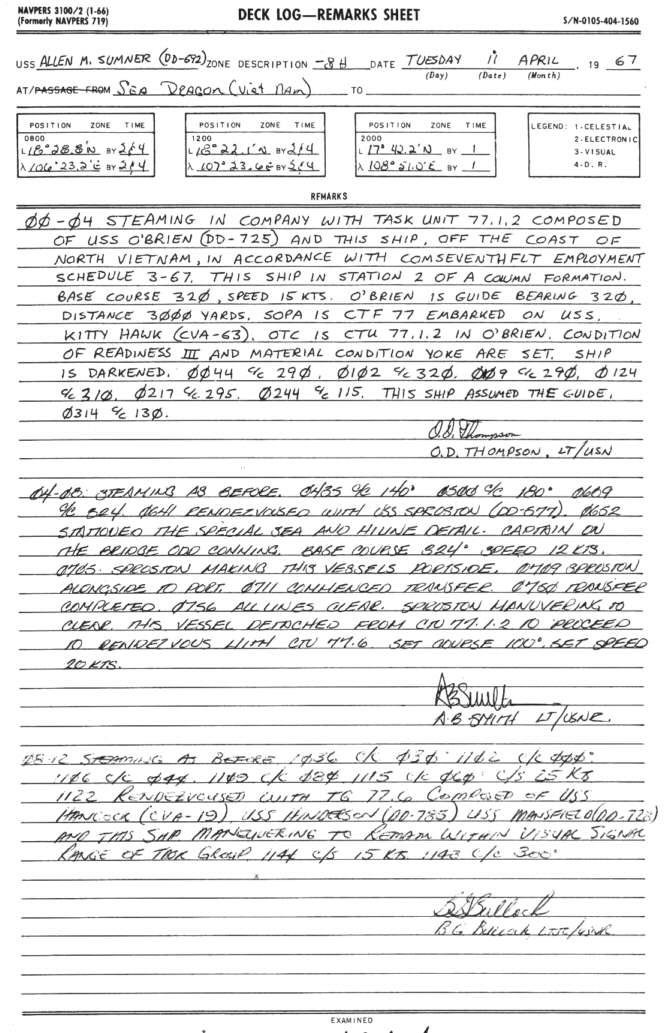 NAVPERS 3100/2 (1-66)
(Formerly NAVPERS 719)
DECK LOG—REMARKS SHEET
S/N-0105-404-1560
USS ALLEN M. SUMNER (DD-692) ZONE DESCRIPTION -8H DATE TUESDAY 11 APRIL 19 67
(Day) (Date) (Month)
AT/PASSAGE FROM SEA DRAGON (Viet Nam) TO
POSITION ZONE TIME
0800
L 18° 28.8'N BY 2/4
λ 106° 23.2'E BY 2/4
POSITION ZONE TIME
1200
L 18° 22.1'N BY 2/4
λ 107° 23.6'E BY 2/4
POSITION ZONE TIME
2000
L 17° 42.2'N BY 1
λ 108° 51.0'E BY 1
LEGEND: 1-CELESTIAL
2-ELECTRONIC
3-VISUAL
4-D. R.
REMARKS
00-04 STEAMING IN COMPANY WITH TASK UNIT 77.1.2 COMPOSED
OF USS O'BRIEN (DD-725) AND THIS SHIP, OFF THE COAST OF
NORTH VIETNAM, IN ACCORDANCE WITH COMSEVENTHFLT EMPLOYMENT
SCHEDULE 3-67. THIS SHIP IN STATION 2 OF A COLUMN FORMATION.
BASE COURSE 320, SPEED 15 KTS. O'BRIEN IS GUIDE BEARING 320,
DISTANCE 3000 YARDS. SOPA IS CTF 77 EMBARKED ON USS.
KITTY HAWK (CVA-63). OTC IS CTU 77.1.2 IN O'BRIEN. CONDITION
OF READINESS III AND MATERIAL CONDITION YOKE ARE SET. SHIP
IS DARKENED. 0044 C/C 290. 0102 C/C 320. C/C 290. 0124
C/C 310. 0217 C/C 295. 0244 C/C 115. THIS SHIP ASSUMED THE GUIDE.
0314 C/C 130.
O.D. Thompson
O.D. THOMPSON, LT/USN
04-08 STEAMING AS BEFORE. 0435 C/C 140° 0500 C/C 180° 0609
C/C 324. 0641 RENDEZVOUSED WITH USS SPROSTON (DD-577). 0652
STATIONED THE SPECIAL SEA AND HILINE DETAIL. CAPTAIN ON
THE BRIDGE OOD CONNING. BASE COURSE 324° SPEED 12 KTS.
0705 SPROSTON MAKING THIS VESSELS PORTSIDE. 0709 SPROSTON
ALONGSIDE TO PORT. 0711 COMMENCED TRANSFER. 0750 TRANSFER
COMPLETED. 0756 ALL LINES CLEAR. SPROSTON MANUVERING TO
CLEAR. THIS VESSEL DETACHED FROM CTU 77.1.2 TO PROCEED
TO RENDEZVOUS WITH CTU 77.6. SET COURSE 100°. SET SPEED
20 KTS.
A B Smith
A.B SMITH LT/USNR.
08-12 STEAMING AS BEFORE 1036 C/C 030° 1102 C/C 000°
1106 C/C 044. 1109 C/C 080 1115 C/C 060° C/S 25 KTS
1122 RENDEZVOUSED WITH TG 77.6 COMPOSED OF USS
HANCOCK (CVA-19), USS HINDERSON (DD-785) USS MANSFIELD (DD-728)
AND THIS SHIP MANEUVERING TO REMAIN WITHIN VISUAL SIGNAL
RANGE OF TASK GROUP. 1141 C/S 15 KTS 1143 C/C 300°
B G Bullock
B.G. Bullock, LTJG/USNR
EXAMINED